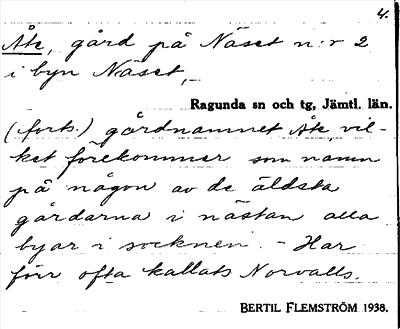 4.
Åke, gård på Näset n:r 2
i byn Näset,
Ragunda sn och tg, Jämtl. län.
(forts.) gårdnamnet Åke, vil-
ket förekommer som namn
på någon av de äldsta
gårdarna i nästan alla
byar i socknen. - Har
förr ofta kallats Norvalls.
BERTIL FLEMSTRÖM 1938.